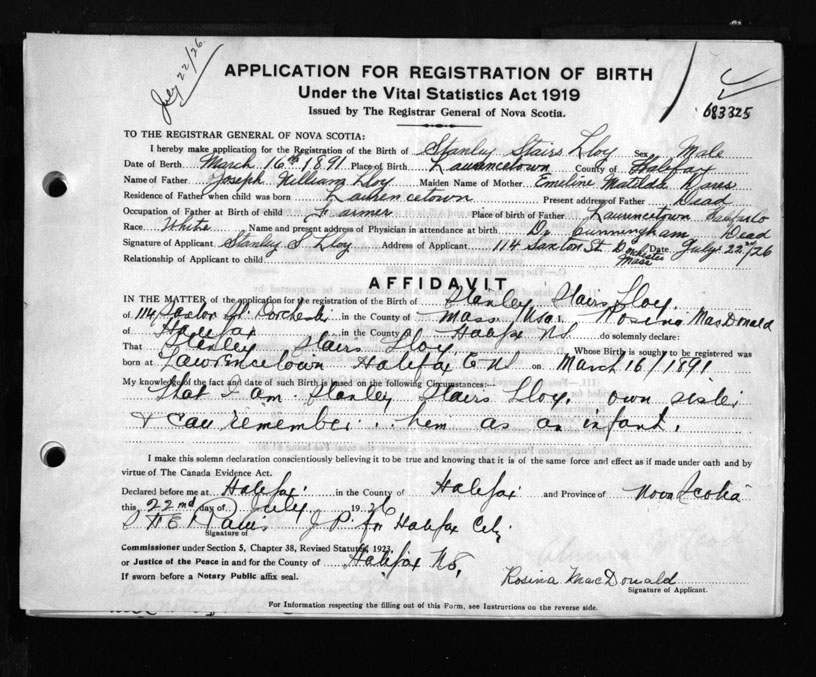 July 22/26.
683325
APPLICATION FOR REGISTRATION OF BIRTH
Under the Vital Statistics Act 1919
Issued by The Registrar General of Nova Scotia.
TO THE REGISTRAR GENERAL OF NOVA SCOTIA:
I hereby make application for the Registration of the Birth of Stanley Stairs Lloy Sex Male
Date of Birth March 16th 1891 Place of Birth Lawrencetown County of Halifax
Name of Father Joseph William Lloy Maiden Name of Mother Emeline Matilda
Residence of Father when child was born Laurencetown Present address of Father Dead
Occupation of Father at Birth of child Farmer Place of birth of Father Laurencetown
Race White Name and present address of Physician in attendance at birth Dr Cunningham Dead
Signature of Applicant Stanley S. Lloy Address of Applicant 114 Saxton St. Dorchester Mass Date July 22nd/26
Relationship of Applicant to child
AFFIDAVIT
IN THE MATTER of the application for the registration of the Birth of Stanley Stairs Lloy.
of 114 Saxton St. Dorchester in the County of Mass. Usa. Rosina MacDonald
of Halifax in the County of Halifax N.S. do solemnly declare:
That Stanley Stairs Lloy. Whose Birth is sought to be registered was
born at Lawrencetown Halifax Co NS on March 16/1891
My knowledge of the fact and date of such Birth is based on the following Circumstances:—
That I am Stanley Stairs Lloy. own sister
& can remember .. hem as an infant.
I make this solemn declaration conscientiously believing it to be true and knowing that it is of the same force and effect as if made under oath and by
virtue of The Canada Evidence Act.
Declared before me at Halifax in the County of Halifax and Province of Nova Scotia
this 22nd day of July 1926
J P. for Halifax City.
Signature of
Commissioner under Section 5, Chapter 38, Revised Statutes, 1923,
or Justice of the Peace in and for the County of Halifax NS,
If sworn before a Notary Public affix seal.
Rosina MacDonald
Signature of Applicant.
For Information respecting the filling out of this Form, see Instructions on the reverse side.